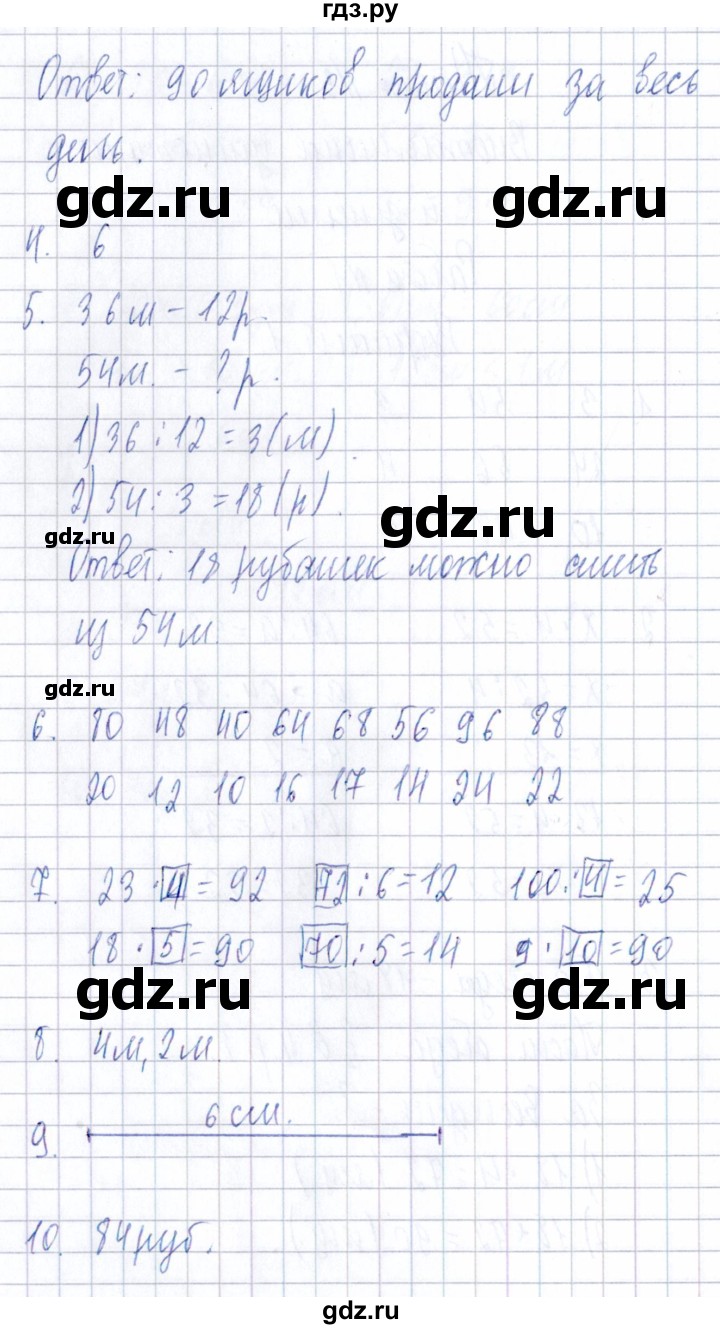 гдз.ру
Ответ: 90 ящиков продали за весь
день.
gdz.ru gdz.ru
4. 6
5. 36м – 12р.
54м. – ? р.
1) 36 : 12 = 3 (м).
2) 54 : 3 = 18 (р).
gdz.ru gdz.ru
Ответ: 18 рубашек можно сшить
из 54м.
gdz.ru
6. 80 48 40 64 68 56 96 88
20 12 10 16 17 14 24 22
7. 23 · 4 = 92 72 : 6 = 12 100 : 4 = 25
18 · 5 = 90 70 : 5 = 14 9 · 10 = 90
gdz.ru gdz.ru
8. 4м, 2м.
6 см.
9.
10. 84 руб.
gdz.ru